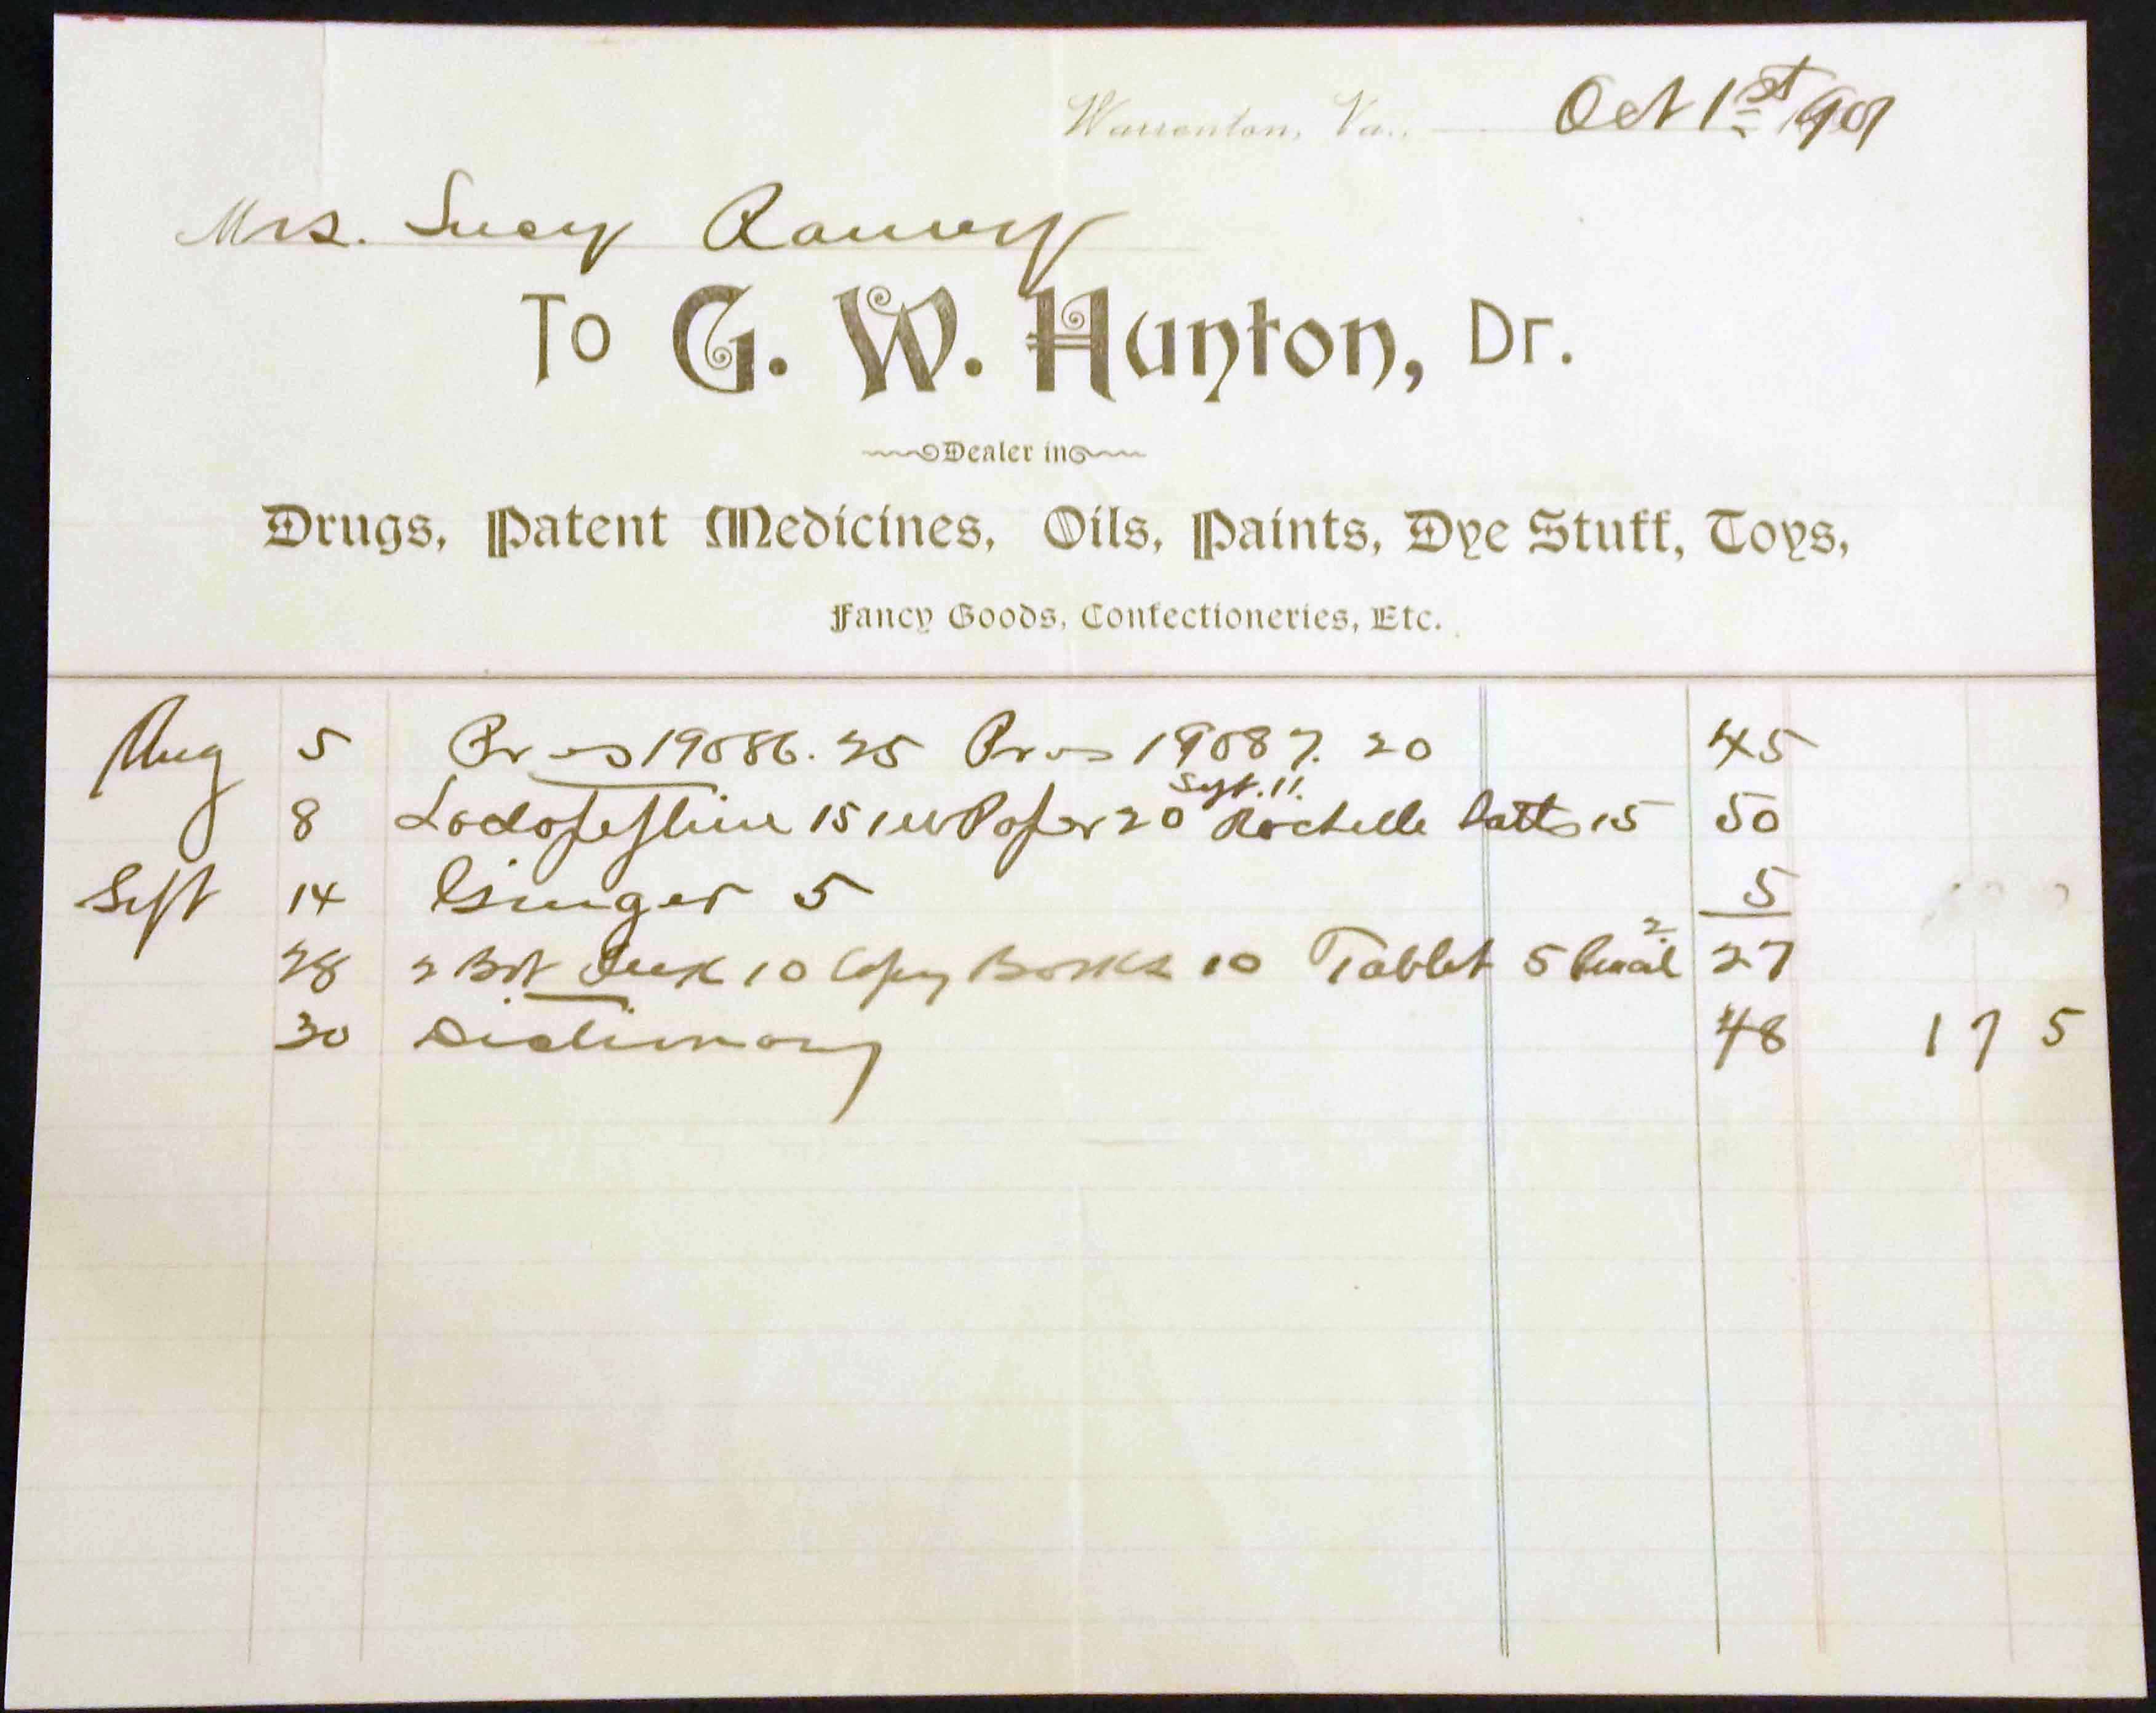 Warrenton, Va., Oct 1st 1901
Mrs. Lucy Ramey
To G. W. Hunton, Dr.
Dealer in
Drugs, Patent Medicines, Oils, Paints, Dye Stuff, Toys,
Fancy Goods, Confectioneries, Etc.
Aug 5 Pres 19086. 25 Pres 19087. 20 45
Sept. 11.
8 15 Paper 20 Rochelle Salts 15 50
Sept 14 Ginger 5 5
28 2 Bot Ink 10 Copy Books 10 Tablet 5 Pencil 2 27
30 Dictionary 48 1 75